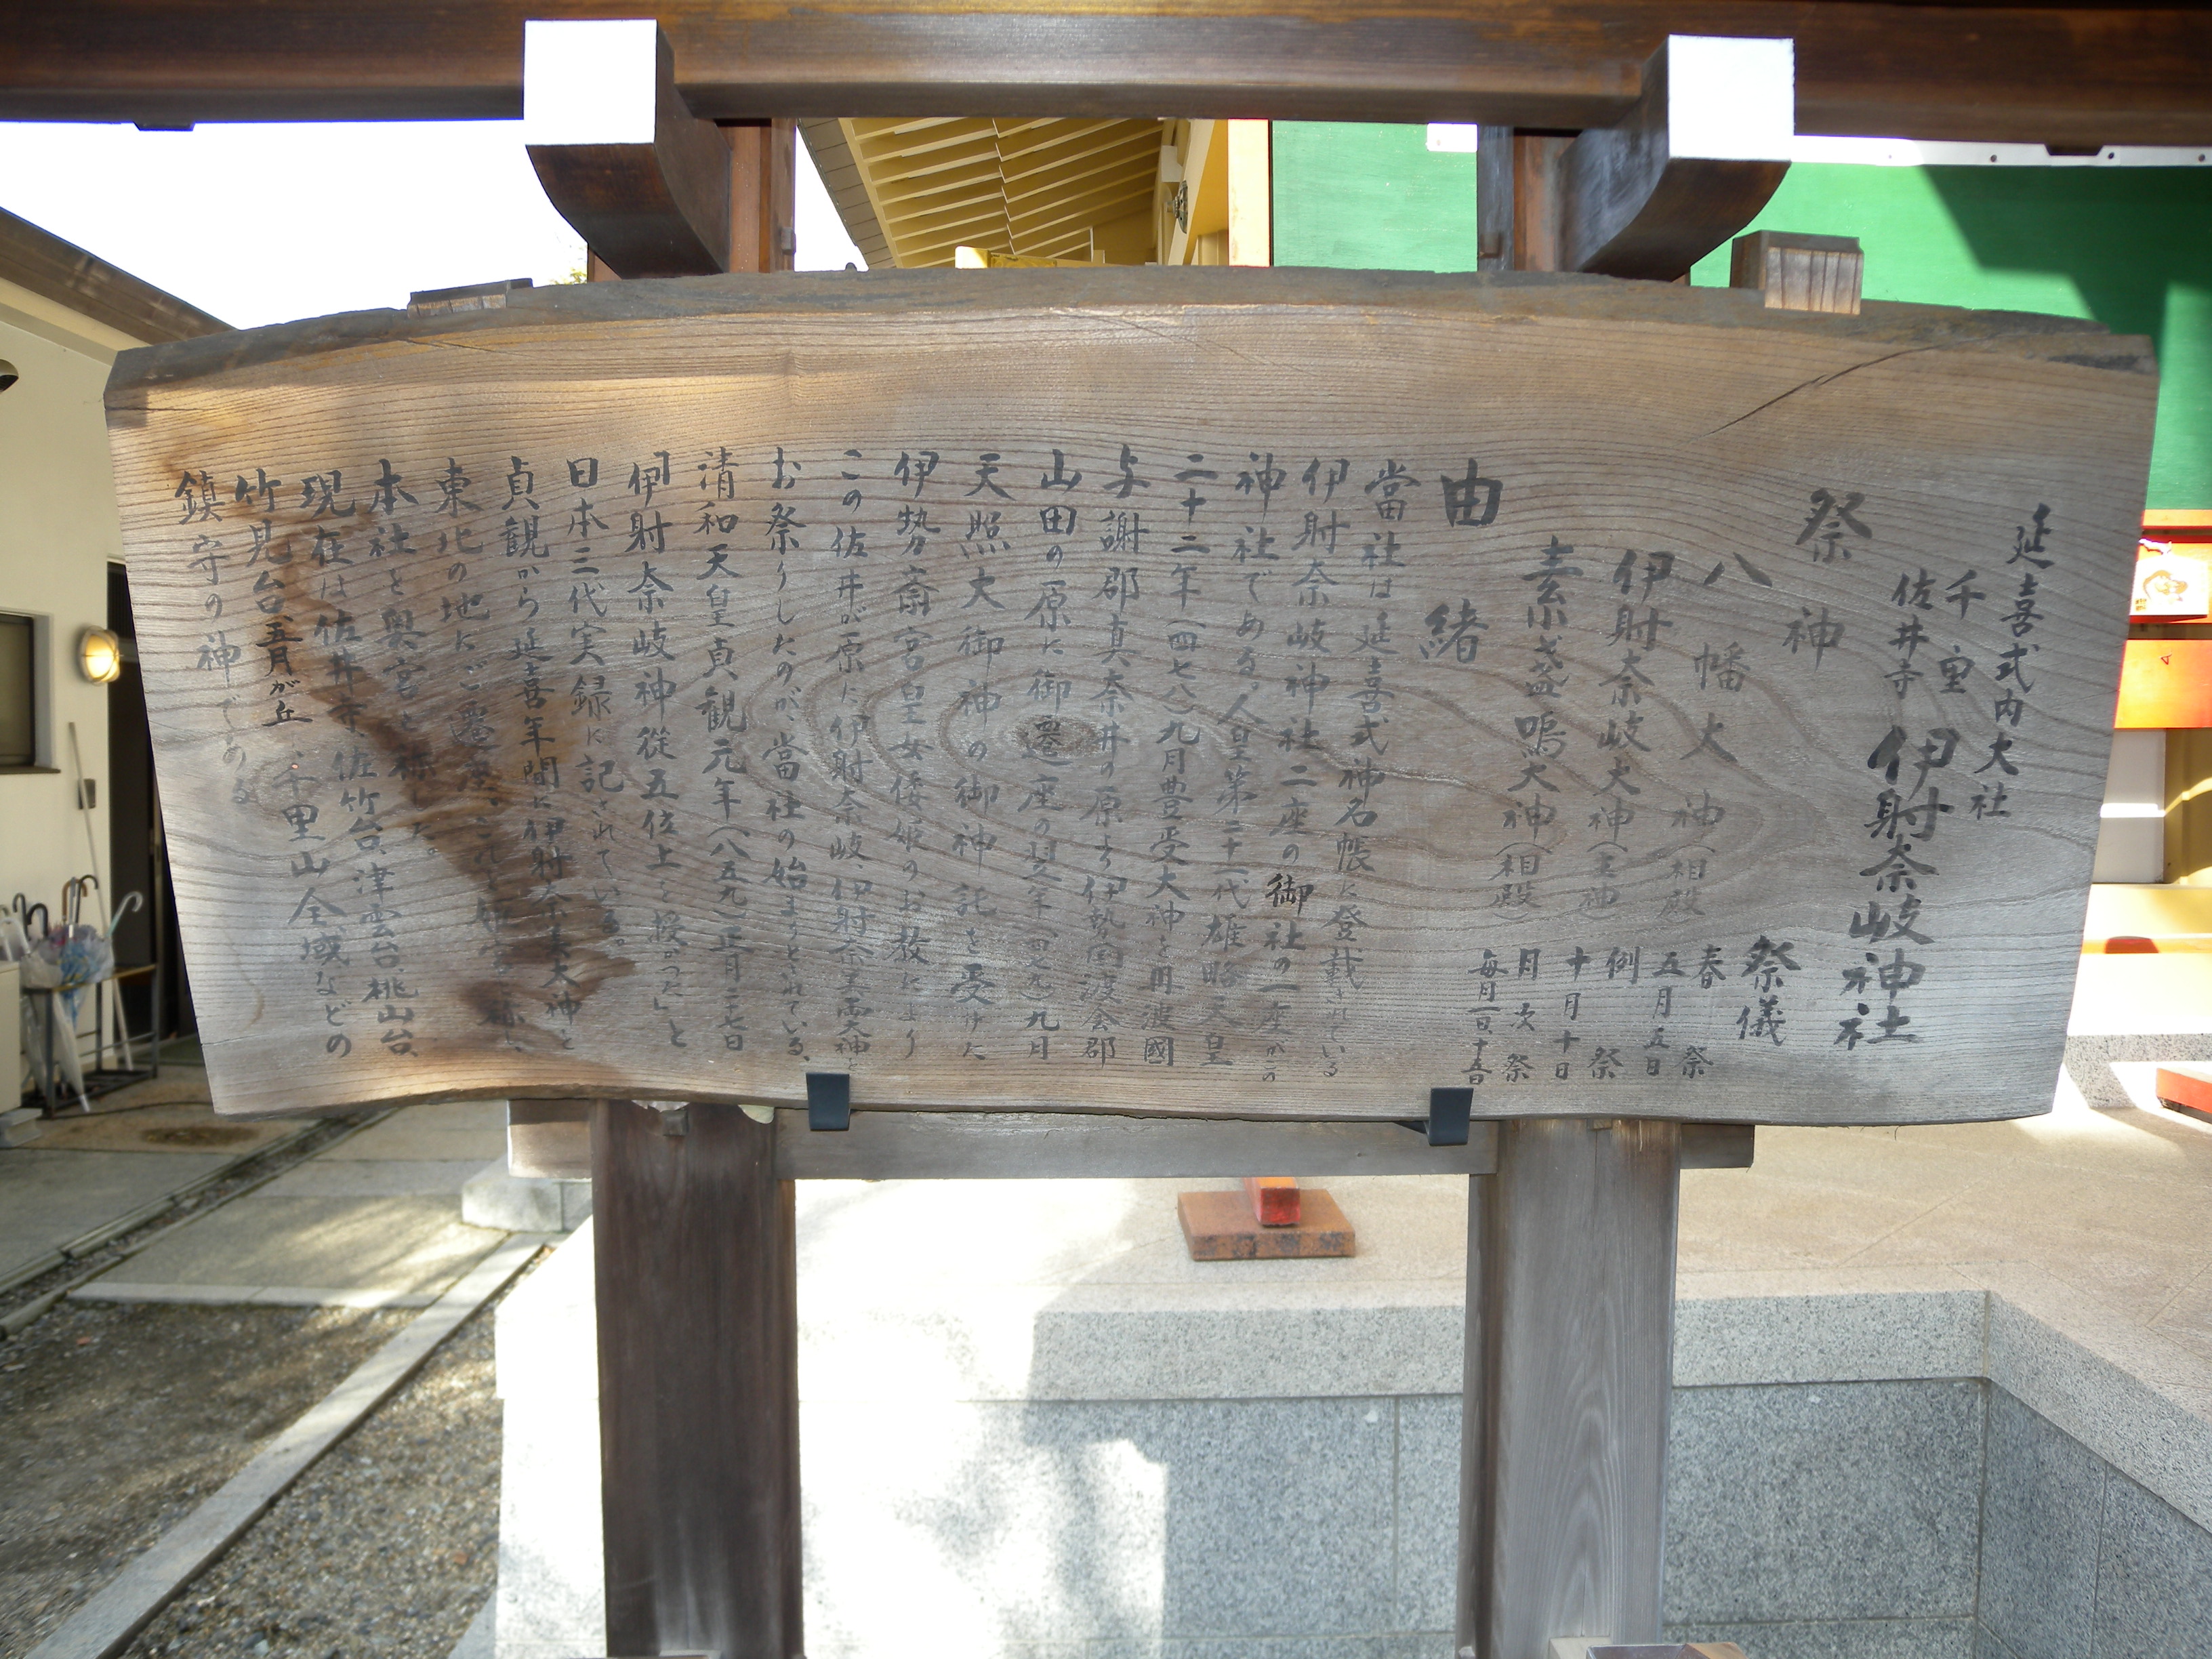 延喜式内大社
千里
佐井寺
伊射奈岐神社
祭神
八幡大神（相殿）
伊射奈岐大神（主神）
素戔嗚大神（相殿）
祭儀
春祭
五月五日
例祭
十月十日
月次祭
毎月一日、十五日
由緒
當社は延喜式神名帳に登載されている
伊射奈岐神社二座の御社の一座がこの
神社である。人皇第二十一代雄略天皇
二十二年（四七八）九月豊受大神を丹波國
与謝郡真奈井の原より伊勢國渡会郡
山田の原に御遷座の翌年（四七九）九月
天照大御神の御神託を受けた
伊勢斎宮皇女倭姫のお教により
この佐井が原に伊射奈岐、伊射奈美両大神を
お祭りしたのが、當社の始まりとされている、
清和天皇貞観元年（八五九）正月二十七日
伊射奈岐神従五位上を授かった」と
日本三代実録に記されている。
貞観から延喜年間に伊射奈美大神を
東北の地にご遷座、これを
本社を奥宮と称した。
現在は佐井寺、佐竹台、津雲台、桃山台、
竹見台、五月が丘、千里山全域などの
鎮守の神である